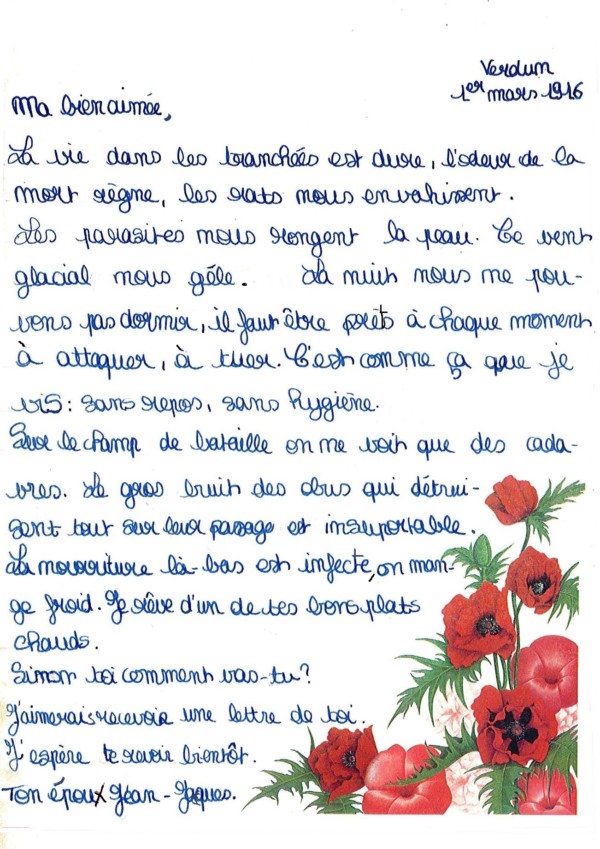 Verdum
1er mars 1916
Ma bien aimée,
La vie dans les tranchées est dure, l'odeur de la
mort règne, les rats nous envahissent.
Les parasites nous rongent la peau. Ce vent
glacial nous gèle. La nuit nous ne pou-
vons pas dormir, il faut être prêts à chaque moment
à attaquer, à tuer. C'est comme ça que je
vis : sans repos, sans hygiène.
Sur le champ de bataille on ne voit que des cada-
vres. Le gros bruit des obus qui détrui-
sent tout sur leur passage est insuportable.
La nourriture là-bas est infecte, on man-
ge froid. Je rêve d'un de tes bons plats
chauds.
Sinon toi comment vas-tu ?
J'aimerais recevoir une lettre de toi.
J'espère te revoir bientôt.
Ton époux Jean-Jaques.